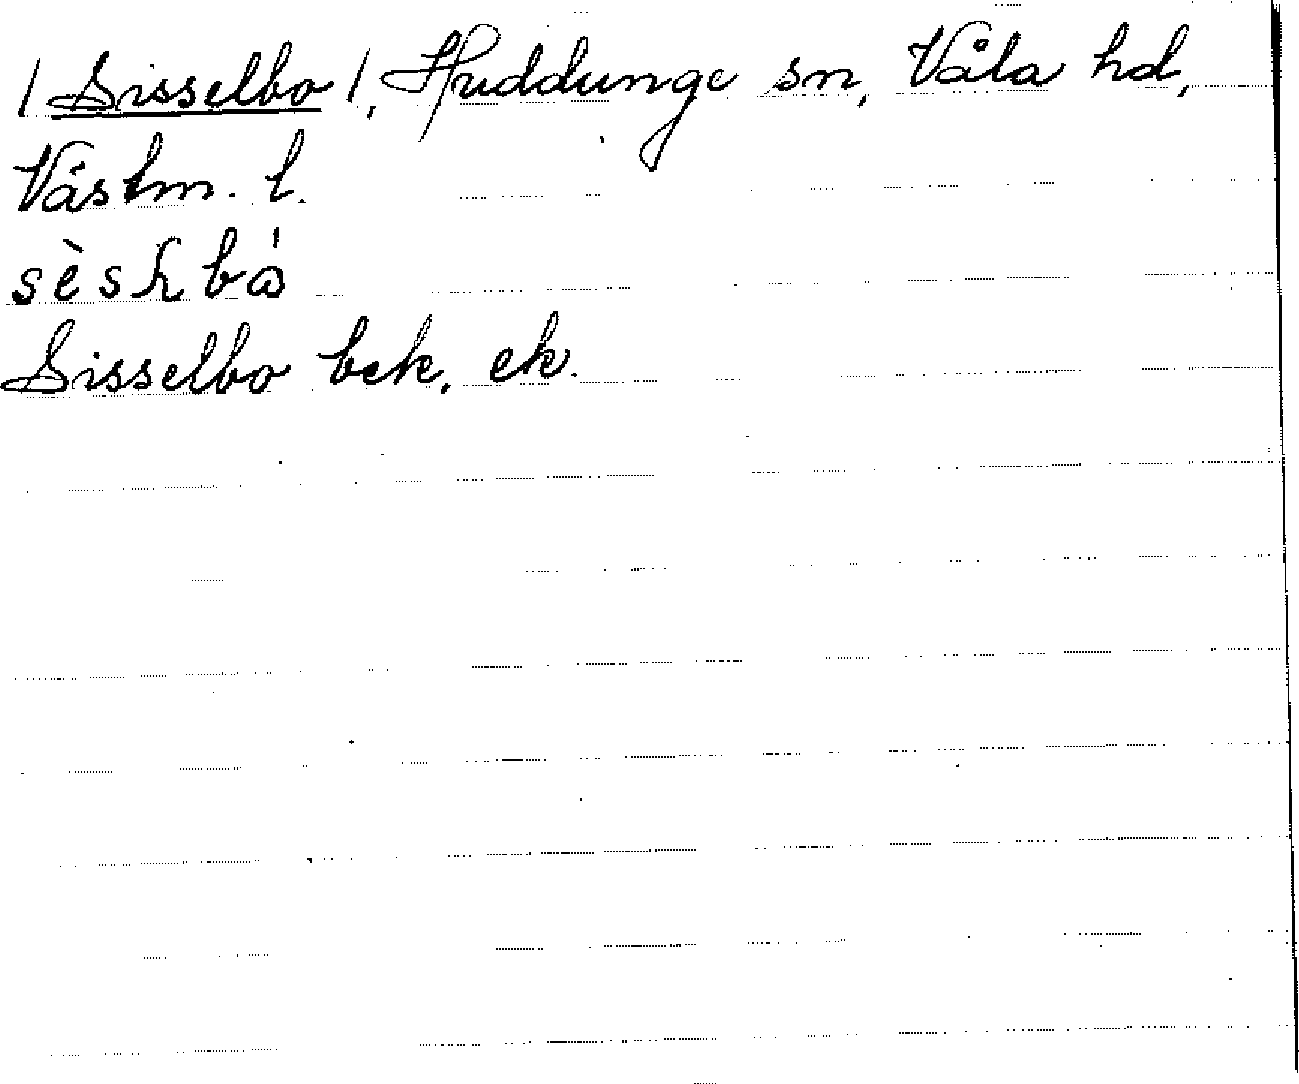 / Sisselbo /, Huddunge sn, Våla hd,
Västm. l.
Sisselbo bek. ek.